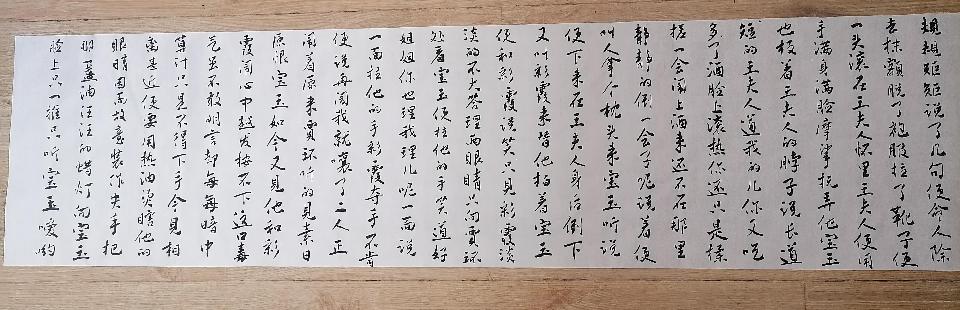 규규矩矩说了几句便命人除
去抹额脱了袍服拉了靴子便
一头滚在王夫人怀里王夫人便用
手满身满脸摩挲抚弄他宝玉
也扳着王夫人的脖子说长道
短的王夫人道我的儿你又吃
多了酒脸上滚热你还只是揉
搓一会闹上酒来还不在那里
静静的倒一会子呢说着便
叫人拿个枕头来宝玉听说
便下来在王夫人身后倒下
又叫彩霞来替他拍着宝玉
便和彩霞说笑只见彩霞淡
淡的不大答理两眼睛只向贾环
处看宝玉便拉他的手笑道好
姐姐你也理我理儿呢一面说
一面拉他的手彩霞夺手不肯
便说再闹我就嚷了二人正
闹着原来贾环听的见素日
原恨宝玉如今又见他和彩
霞闹心中越发按不下这口毒
气虽不敢明言却每每暗中
算计只是不得下手今见相
离甚近便要用热油烫瞎他的
眼睛因而故意装作失手把
那一盏油汪汪的蜡灯向宝玉
脸上只一推只听宝玉嗳哟